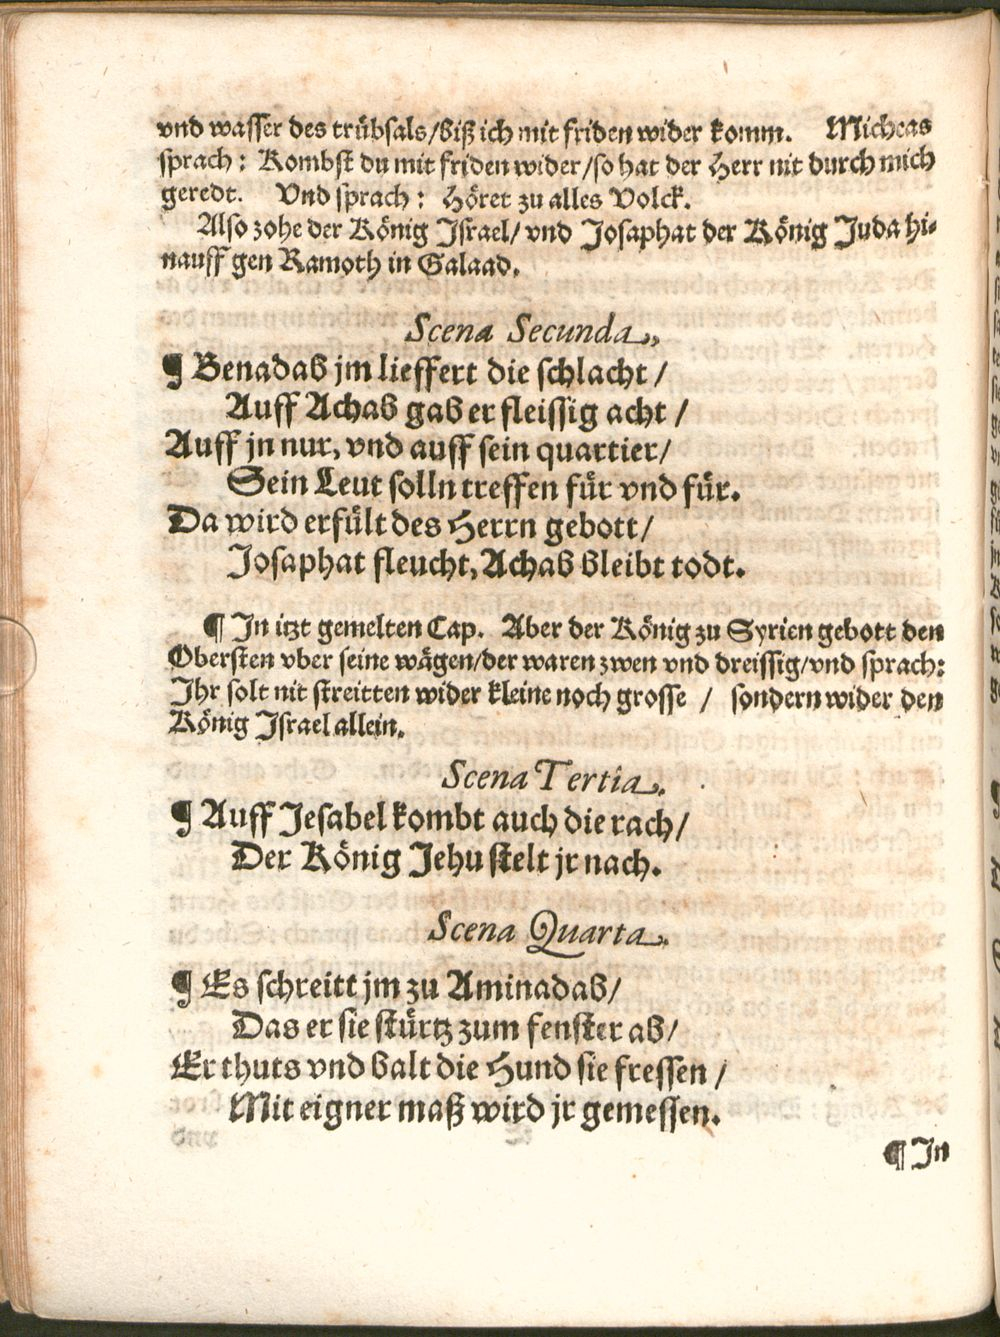 vnd wasser des trübsals/biß ich mit friden wider komm. Micheas
sprach: Kombst du mit friden wider/so hat der Herr nit durch mich
geredt. Vnd sprach: Höret zu alles Volck.
Also zohe der König Israel/ vnd Josaphat der König Juda hi-
nauff gen Ramoth in Galaad.
Scena Secunda.
¶ Benadab jm lieffert die schlacht /
Auff Achab gab er fleissig acht /
Auff jn nur, vnd auff sein quartier/
Sein Leut solln treffen für vnd für.
Da wird erfült des Herrn gebott/
Josaphat fleucht, Achab bleibt todt.
¶ In itzt gemelten Cap. Aber der König zu Syrien gebott den
Obersten vber seine wägen/der waren zwen vnd dreissig/vnd sprach:
Ihr solt nit streitten wider kleine noch grosse / sondern wider den
König Israel allein.
Scena Tertia.
¶ Auff Jesabel kombt auch die rach/
Der König Jehu stelt jr nach.
Scena Quarta.
¶ Es schreitt jm zu Aminadab/
Das er sie stürtz zum fenster ab/
Er thuts vnd balt die Hund sie fressen /
Mit eigner maß wird jr gemessen.
¶ In